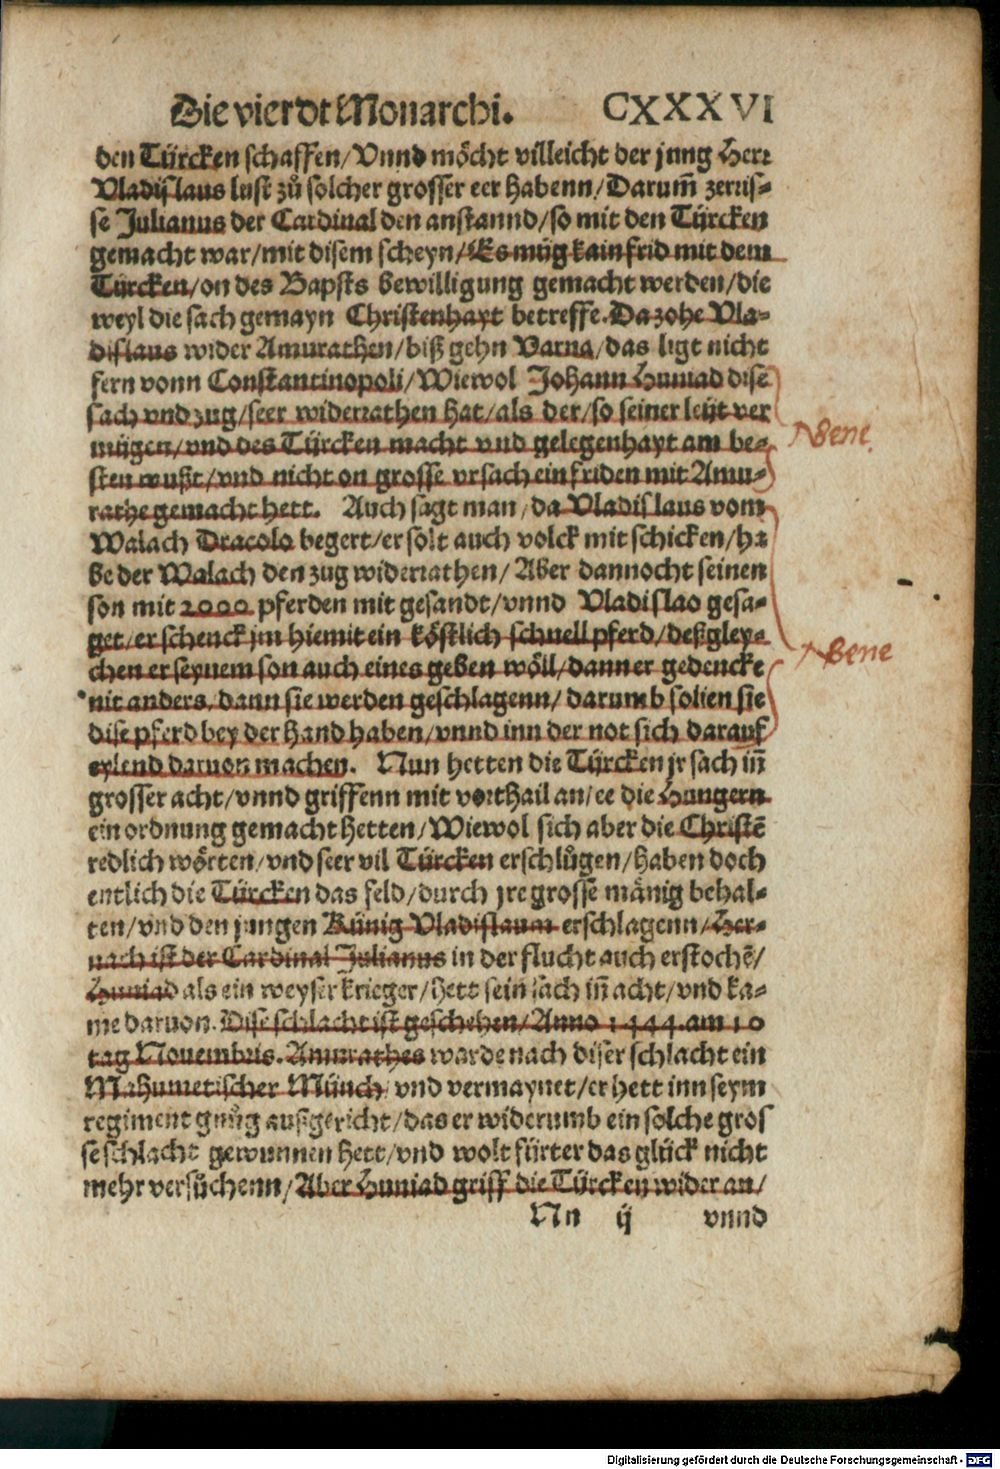 Die vierdt Monarchi. CXXXVI
den Türcken schaffen/Vnnd möcht villeicht der jung Herr
Vladislaus lust zů solcher grosser eer habenn/Darum̃ zerris-
se Julianus der Cardinal den anstannd/so mit den Türcken
gemacht war/mit disem scheyn/Es müg kain frid mit dem
Türcken/on des Bapsts bewilligung gemacht werden/die
weyl die sach gemayn Christenhayt betreffe. Da zohe Vla-
dislaus wider Amurathen/biß gehn Varna/das ligt nicht
fern vonn Constantinopoli/Wiewol Johann Huniad dise
sach vnd zug/seer widerrathen hat/als der/so seiner leüt ver
mügen/vnd des Türcken macht vnd gelegenhayt am be-
sten wußt/vnd nicht on grosse vrsach ein friden mit Amu-
rathe gemacht hett. Auch sagt man/da Vladislaus vom
Walach Dracolo begert/er solt auch volck mit schicken/ha
be der Walach den zug widerrathen/Aber dannocht seinen
son mit 2000 pferden mit gesandt/vnnd Vladislao gesa-
get/er schenck jm hiemit ein köstlich schnell pferd/deßgley-
chen er seynem son auch eines geben wöll/dann er gedencke
nit anders, dann sie werden geschlagenn/darumb sollen sie
dise pferd bey der hand haben/vnnd inn der not sich darauf
eylend daruon machen. Nun hetten die Türcken jr sach iñ
grosser acht/vnnd griffenn mit vorthail an/ee die Hungern
ein ordnung gemacht hetten/Wiewol sich aber die Christē
redlich wörten/vnd seer vil Türcken erschlůgen/haben doch
entlich die Türcken das feld/durch jre grosse mänig behal-
ten/vnd den jungen Künig Vladislaum erschlagenn/Her-
nach ist der Cardinal Julianus in der flucht auch erstochē/
Huniad als ein weyser krieger/hett sein sach iñ acht/vnd ka-
me daruon. Dise schlacht ist geschehen/Anno 1444. am 10
tag Nouembris. Amurathes warde nach diser schlacht ein
Mahumetischer Münch/vnd vermaynet/er hett inn seym
regiment gnůg außgericht/das er widerumb ein solche gros
se schlacht gewunnen hett/vnd wolt fürter das glück nicht
mehr versůchenn/Aber Huniad griff die Türcken wider an/
Nn ij vnnd
NBene
NBene
Digitalisierung gefördert durch die Deutsche Forschungsgemeinschaft - DFG